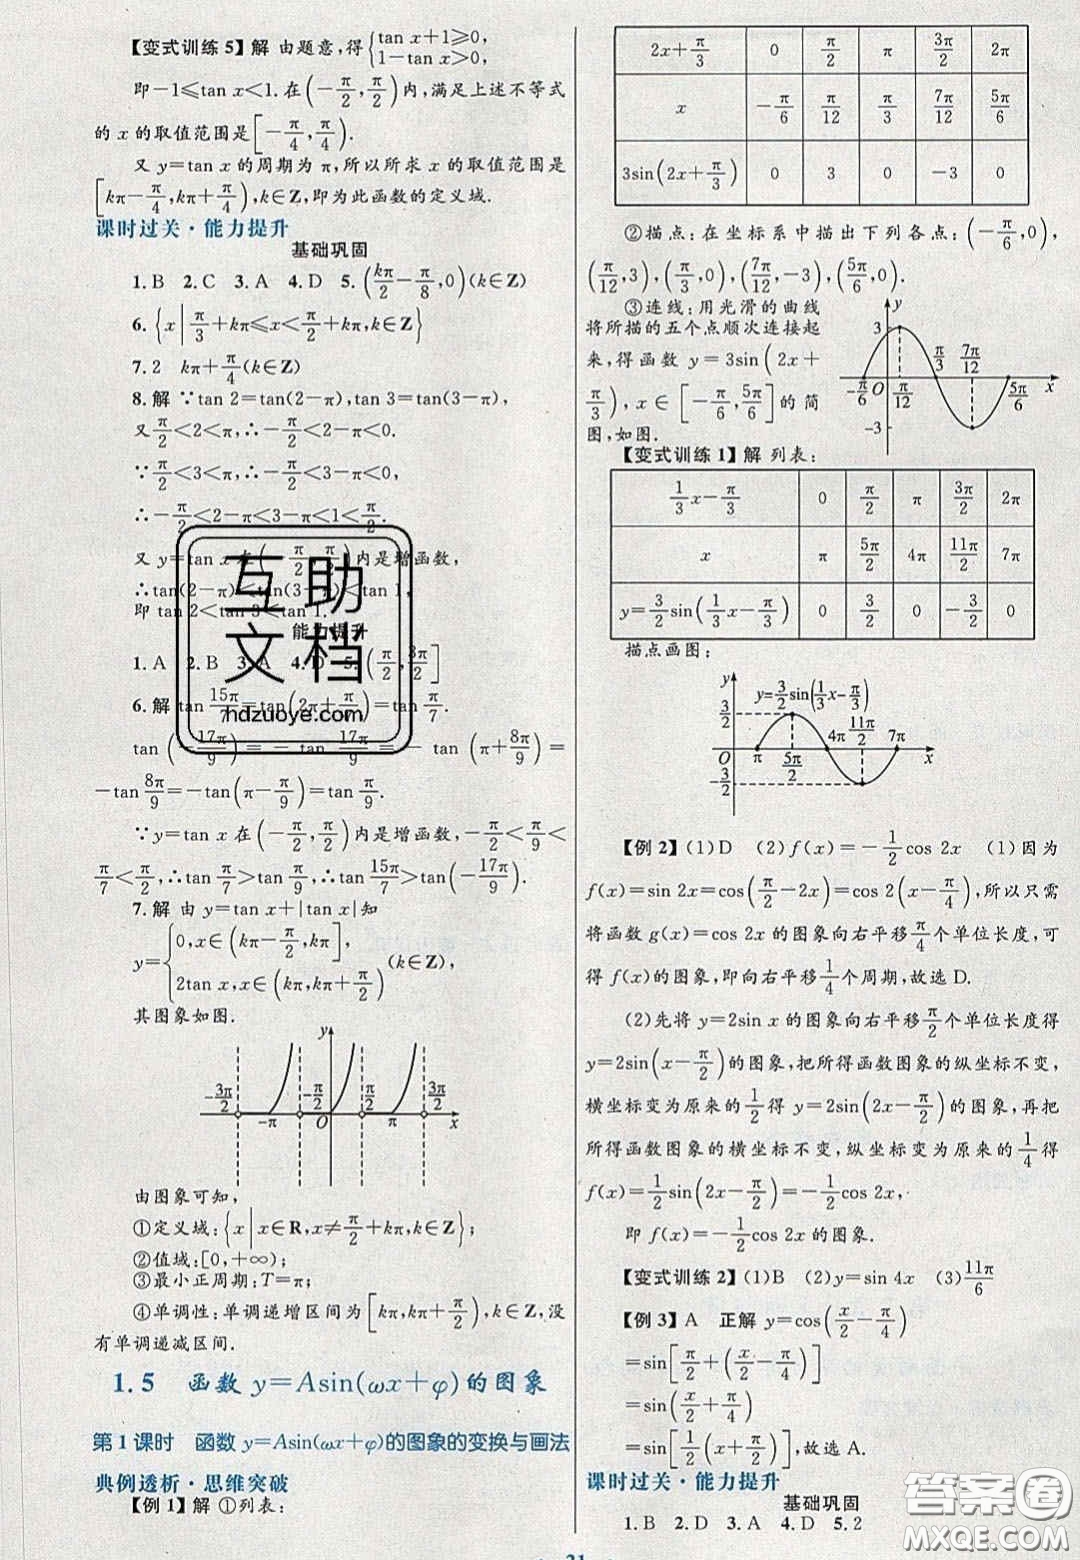 【变式训练5】解 由题意,得{tan x+1≥0, 1-tan x>0,
即-1≤tan x<1.在(-π/2,π/2)内,满足上述不等式
的x的取值范围是[-π/4,π/4).
又y=tan x的周期为π,所以所求x的取值范围是
[kπ-π/4,kπ+π/4),k∈Z,即为此函数的定义域.
课时过关·能力提升
基础巩固
1.B 2.C 3.A 4.D 5.(kπ/2-π/8,0)(k∈Z)
6.{x|π/3+kπ≤x<π/2+kπ,k∈Z}
7.2 kπ+π/4(k∈Z)
8.解 ∵tan 2=tan(2-π),tan 3=tan(3-π),
又π/2<2<π,∴-π/2<2-π<0.
∵π/2<3<π,∴-π/2<3-π<0.
∴-π/2<2-π<3-π<1<π/2.
又y=tan x在(-π/2,π/2)内是增函数,
∴tan(2-π)<tan(3-π)<tan 1,
即tan 2<tan 3<tan 1.
能力提升
1.A 2.B 3.A 4.D 5.(π/2,3π/2]
6.解 tan 15π/7=tan(2π+π/7)=tan π/7.
tan(-17π/9)=-tan 17π/9=-tan(π+8π/9)=
-tan 8π/9=-tan(π-π/9)=tan π/9.
∵y=tan x在(-π/2,π/2)内是增函数,-π/2<π/9<
π/7<π/2,∴tan π/7>tan π/9,∴tan 15π/7>tan(-17π/9).
7.解 由y=tan x+|tan x|知
y={0,x∈(kπ-π/2,kπ], 2tan x,x∈(kπ,kπ+π/2) (k∈Z),
其图象如图.
y
-3π/2 -π/2 π/2 3π/2
-π O π x
由图象可知,
①定义域:{x|x∈R,x≠π/2+kπ,k∈Z};
②值域:[0,+∞);
③最小正周期:T=π;
④单调性:单调递增区间为[kπ,kπ+π/2),k∈Z,没
有单调递减区间.
1.5 函数y=Asin(ωx+φ)的图象
第1课时 函数y=Asin(ωx+φ)的图象的变换与画法
典例透析·思维突破
【例1】解 ①列表:
2x+π/3 0 π/2 π 3π/2 2π
x -π/6 π/12 π/3 7π/12 5π/6
3sin(2x+π/3) 0 3 0 -3 0
②描点:在坐标系中描出下列各点:(-π/6,0),
(π/12,3),(π/3,0),(7π/12,-3),(5π/6,0).
③连线:用光滑的曲线
将所描的五个点顺次连接起
来,得函数y=3sin(2x+
π/3),x∈[-π/6,5π/6]的简
图,如图.
y
3
π/3 7π/12
-π/6 O π/12 5π/6 x
-3
【变式训练1】解 列表:
1/3x-π/3 0 π/2 π 3π/2 2π
x π 5π/2 4π 11π/2 7π
y=3/2sin(1/3x-π/3) 0 3/2 0 -3/2 0
描点画图:
y y=3/2sin(1/3x-π/3)
3/2
11π/2
O π 5π/2 4π 7π x
-3/2
【例2】(1)D (2)f(x)=-1/2cos 2x (1)因为
f(x)=sin 2x=cos(π/2-2x)=cos 2(x-π/4),所以只需
将函数g(x)=cos 2x的图象向右平移π/4个单位长度,可
得f(x)的图象,即向右平移1/4个周期,故选D.
(2)先将y=2sin x的图象向右平移π/2个单位长度得
y=2sin(x-π/2)的图象,把所得函数图象的纵坐标不变,
横坐标变为原来的1/2得y=2sin(2x-π/2)的图象,再把
所得函数图象的横坐标不变,纵坐标变为原来的1/4得
f(x)=1/2sin(2x-π/2)=-1/2cos 2x,
即f(x)=-1/2cos 2x的图象.
【变式训练2】(1)B (2)y=sin 4x (3)11π/6
【例3】A 正解 y=cos(x/2-π/4)
=sin[π/2+(x/2-π/4)]
=sin(x/2+π/4)
=sin[1/2(x+π/2)],故选A.
课时过关·能力提升
基础巩固
1.B 2.D 3.A 4.D 5.2
31
互助
文档
hdzuoye.com
答案圈
MXQE.COM